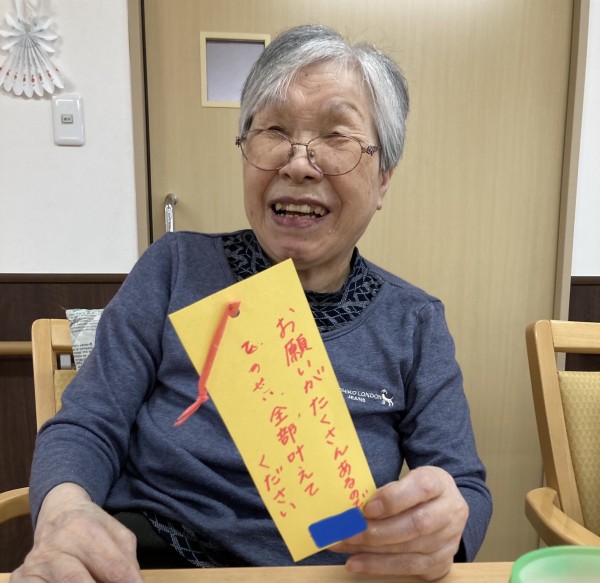 お願いがたくさんあるので
ぜひ
全部叶えて
ください
LONDON
JEANS